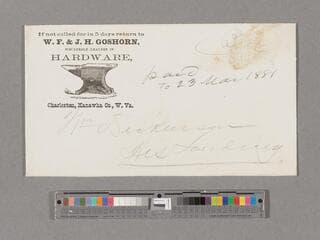 If not called for in 5 days return to
W. F. & J. H. GOSHORN,
WHOLESALE DEALERS IN
HARDWARE,
Charleston, Kanawha Co., W. Va.
paid
To 23 Mar 1881
Wm Dickinson
Landing